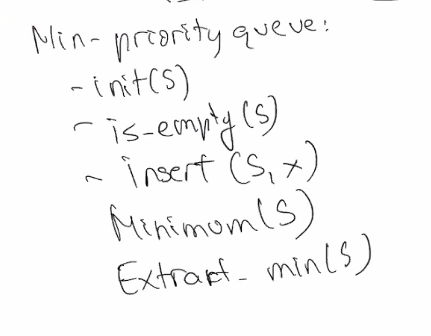 Min-priority queue:
- init(S)
- is-empty(S)
- insert (S, x)
Minimum(S)
Extract_min(S)